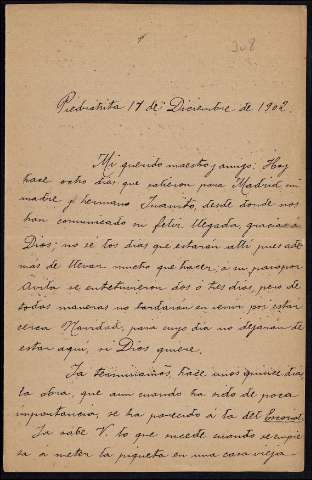 308
Piedrahita 17 de Diciembre de 1902.
Mi querido maestro y amigo: Hoy
hace ocho días que salieron para Madrid mi
madre y hermano Juanito, desde donde nos
han comunicado su feliz llegada, gracias á
Dios; no se los días que estarán allí pues ade
más de llevar mucho que hacer, a su paso por
Avila se entretuvieron dos ó tres días, pero de
todas maneras no tardarán en venir por estar
cerca Navidad, para cuyo día no dejarán de
estar aquí, si Dios quiere.
Ya terminamos, hace unos quince días
la obra, que aun cuando ha sido de poca
importancia, se ha parecido á la del Escorial.
Ya sabe V. lo que sucede cuando se empie
sa a meter la piqueta en una casa vieja